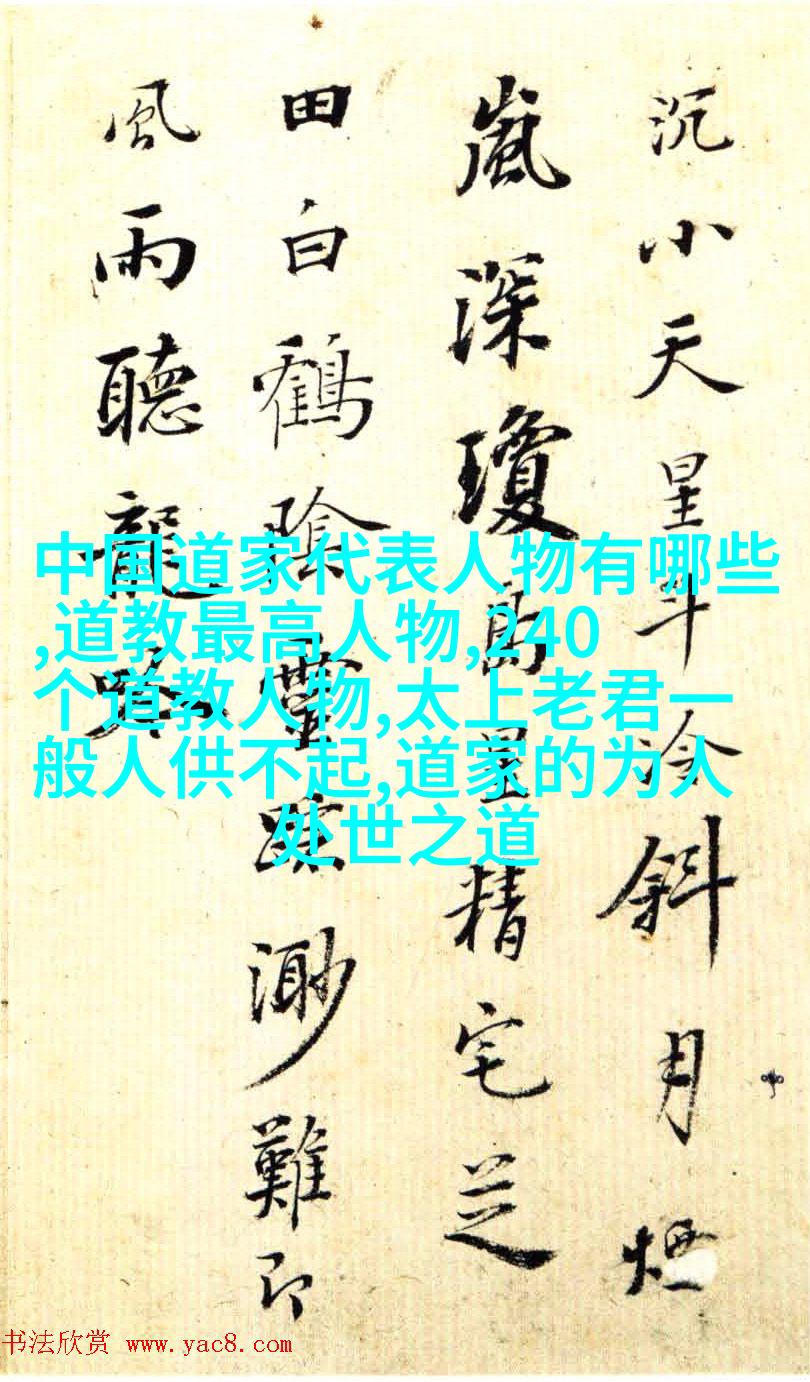 沉小天星斗冷斜月煙
嵐深瓊島星精宅芝
田白鶴陰靈踪渺難即
風雨聽龍
中国道家代表人物有哪些
,道教最高人物,240
个道教人物,太上老君一
般人供不起,道家的为人
处世之道
书法欣赏 www.yac8.com